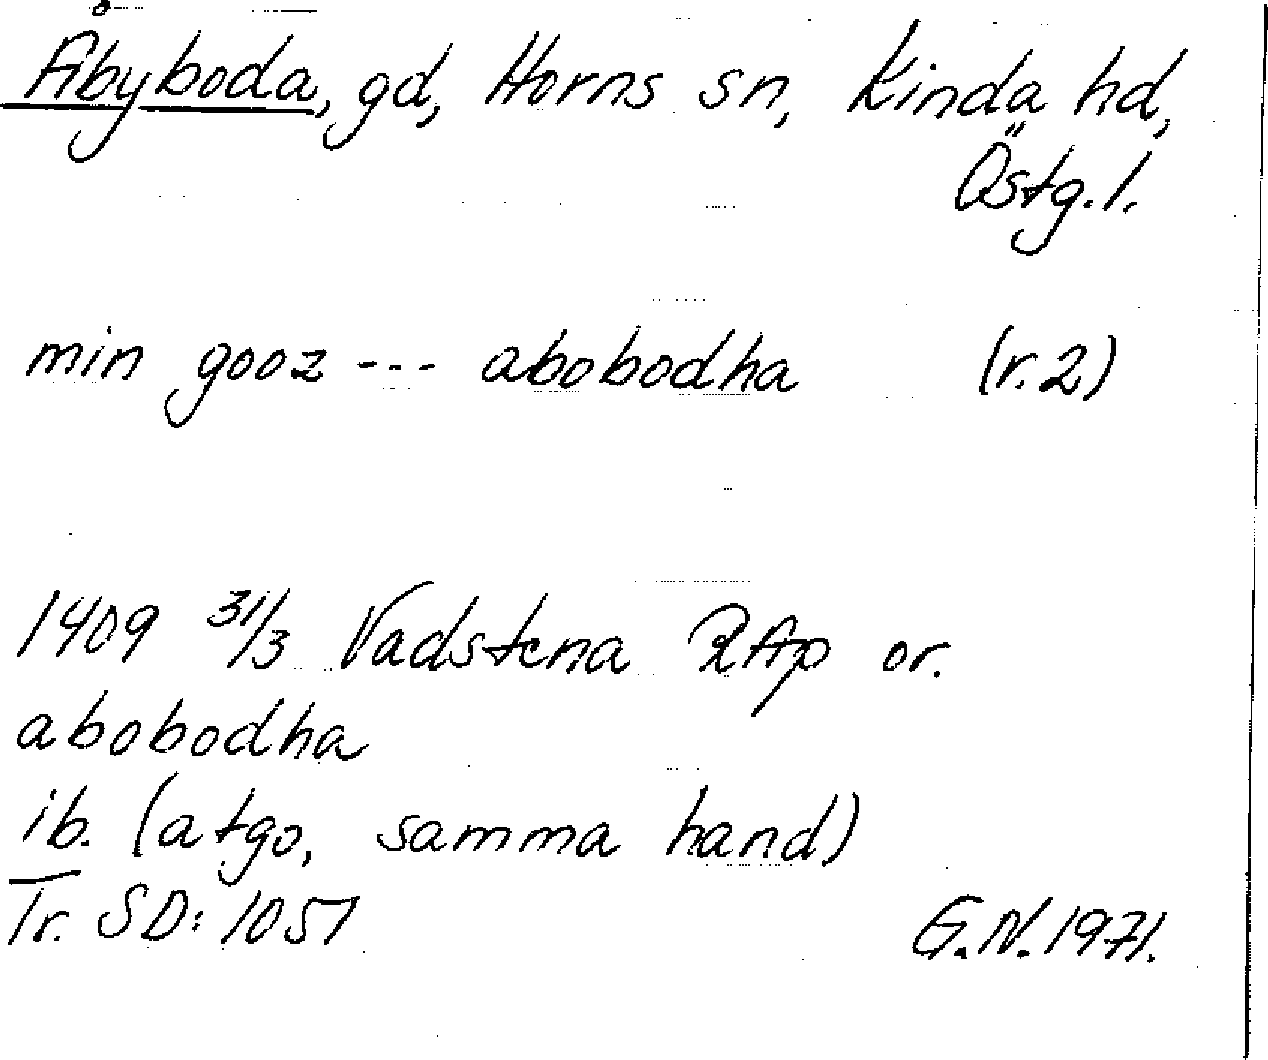 Åbyboda, gd, Horns sn, Kinda hd,
Östg. l.
min gooz --- abobodha (r. 2)
1409 31/3 Vadstena RAp or.
abobodha
ib. (atgo, samma hand)
Tr. SD: 1051
G.N. 1971.